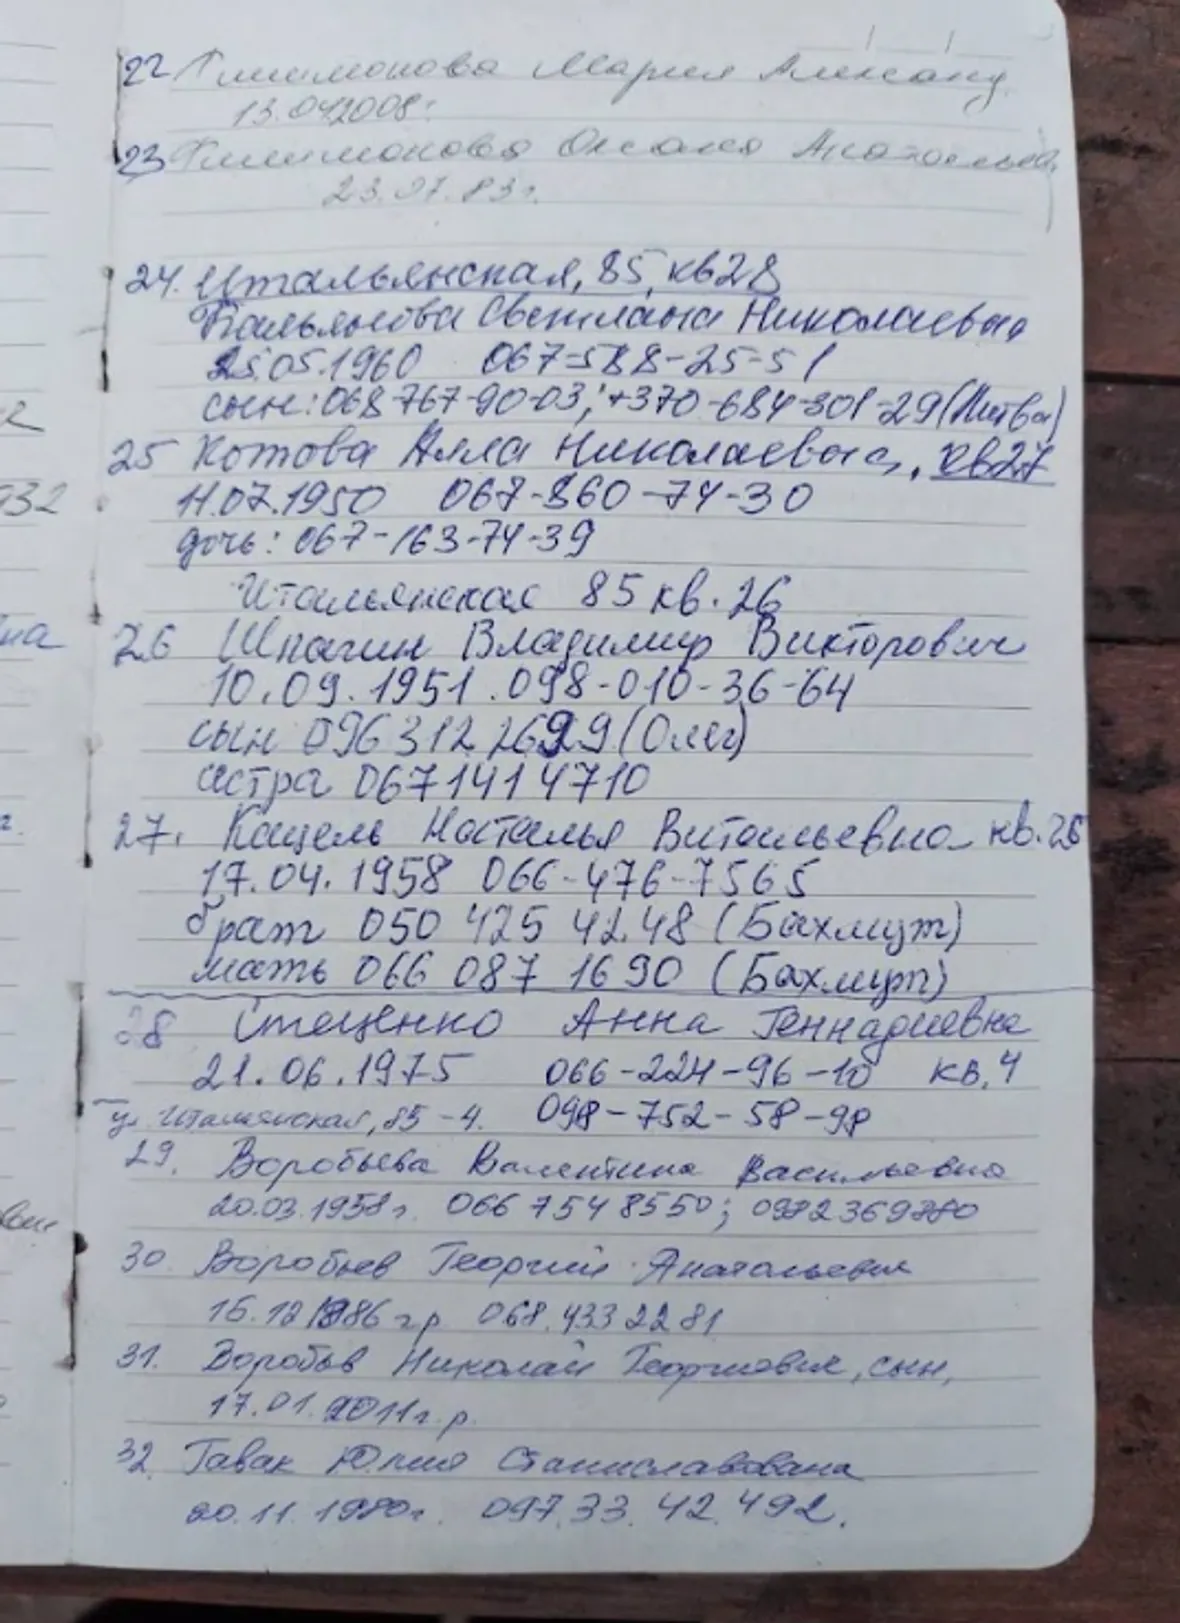 22 Филимонова Мария Александ
13.04.2008г.
23 Филимонова Оксана Анатольев
23.07.83г.
24. Итальянская, 85, кв28
Светлана Николаевна
25.05.1960 067-588-25-51
сын: 068-767-90-03, +370-684-301-29 (Литва)
25 Котова Алла Николаевна, кв27
11.07.1950 067-860-74-30
дочь: 067-163-74-39
Итальянская 85 кв. 26
26 Шпагин Владимир Викторович
10.09.1951. 098-010-36-64
сын 096 312 (Олег)
сестра 0671414710
27. Кацель Наталья Витальевна кв. 26
17.04.1958 066-476-7565
брат 050 425 42.48 (Бахмут)
мать 066 087 1690 (Бахмут)
28 Стеценко Анна Геннадиевна
21.06.1975 066-224-96-10 кв. 4
ул. Итальянская, 85-4. 098-752-58-98
29. Воробьева Валентина Васильевна
20.03.1958г. 066 754 8550;
30. Воробьев Георгий Анатольевич
16.12.1986 г.р 068.433 22 81
31. Воробьёв Николай Георгиевич, сын,
17.01.2011г.р.
32. Гавак Юлия Станиславовна
20.11.1980г. 097.33.42.492.
932